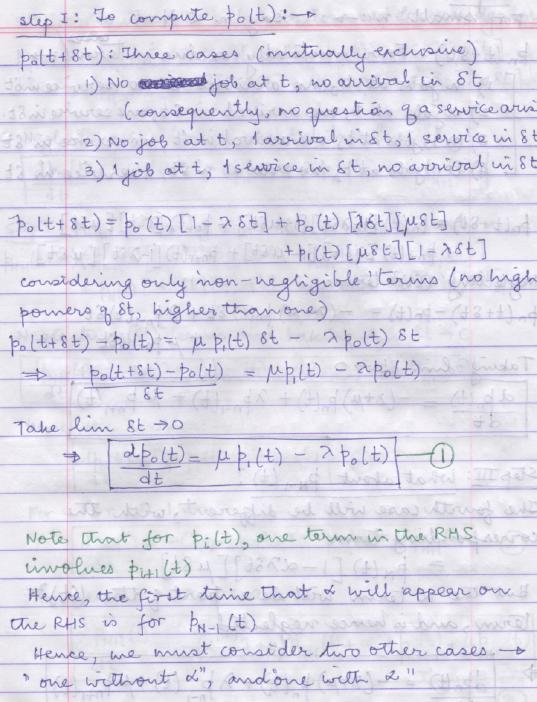 step I: To compute p₀(t) :→
p₀(t+δt) : Three cases (mutually exclusive)
1) No job at t, no arrival in δt
(consequently, no question of a service aris
2) No job at t, 1 arrival in δt, 1 service in δt
3) 1 job at t, 1 service in δt, no arrival in δt
p₀(t+δt) = p₀(t) [1-λδt] + p₀(t) [λδt][μδt]
+ p₁(t) [μδt][1-λδt]
considering only 'non-negligible' terms (no high
powers of δt, higher than one)
p₀(t+δt) - p₀(t) = μ p₁(t) δt - λ p₀(t) δt
⇒ p₀(t+δt) - p₀(t) / δt = μp₁(t) - λp₀(t)
Take lim δt → 0
⇒ dp₀(t)/dt = μ p₁(t) - λ p₀(t) — ①
Note that for pᵢ(t), one term in the RHS
involves pᵢ₊₁(t)
Hence, the first time that α will appear on
the RHS is for p_{N-1}(t)
Hence, we must consider two other cases →
"one without α", and "one with α"